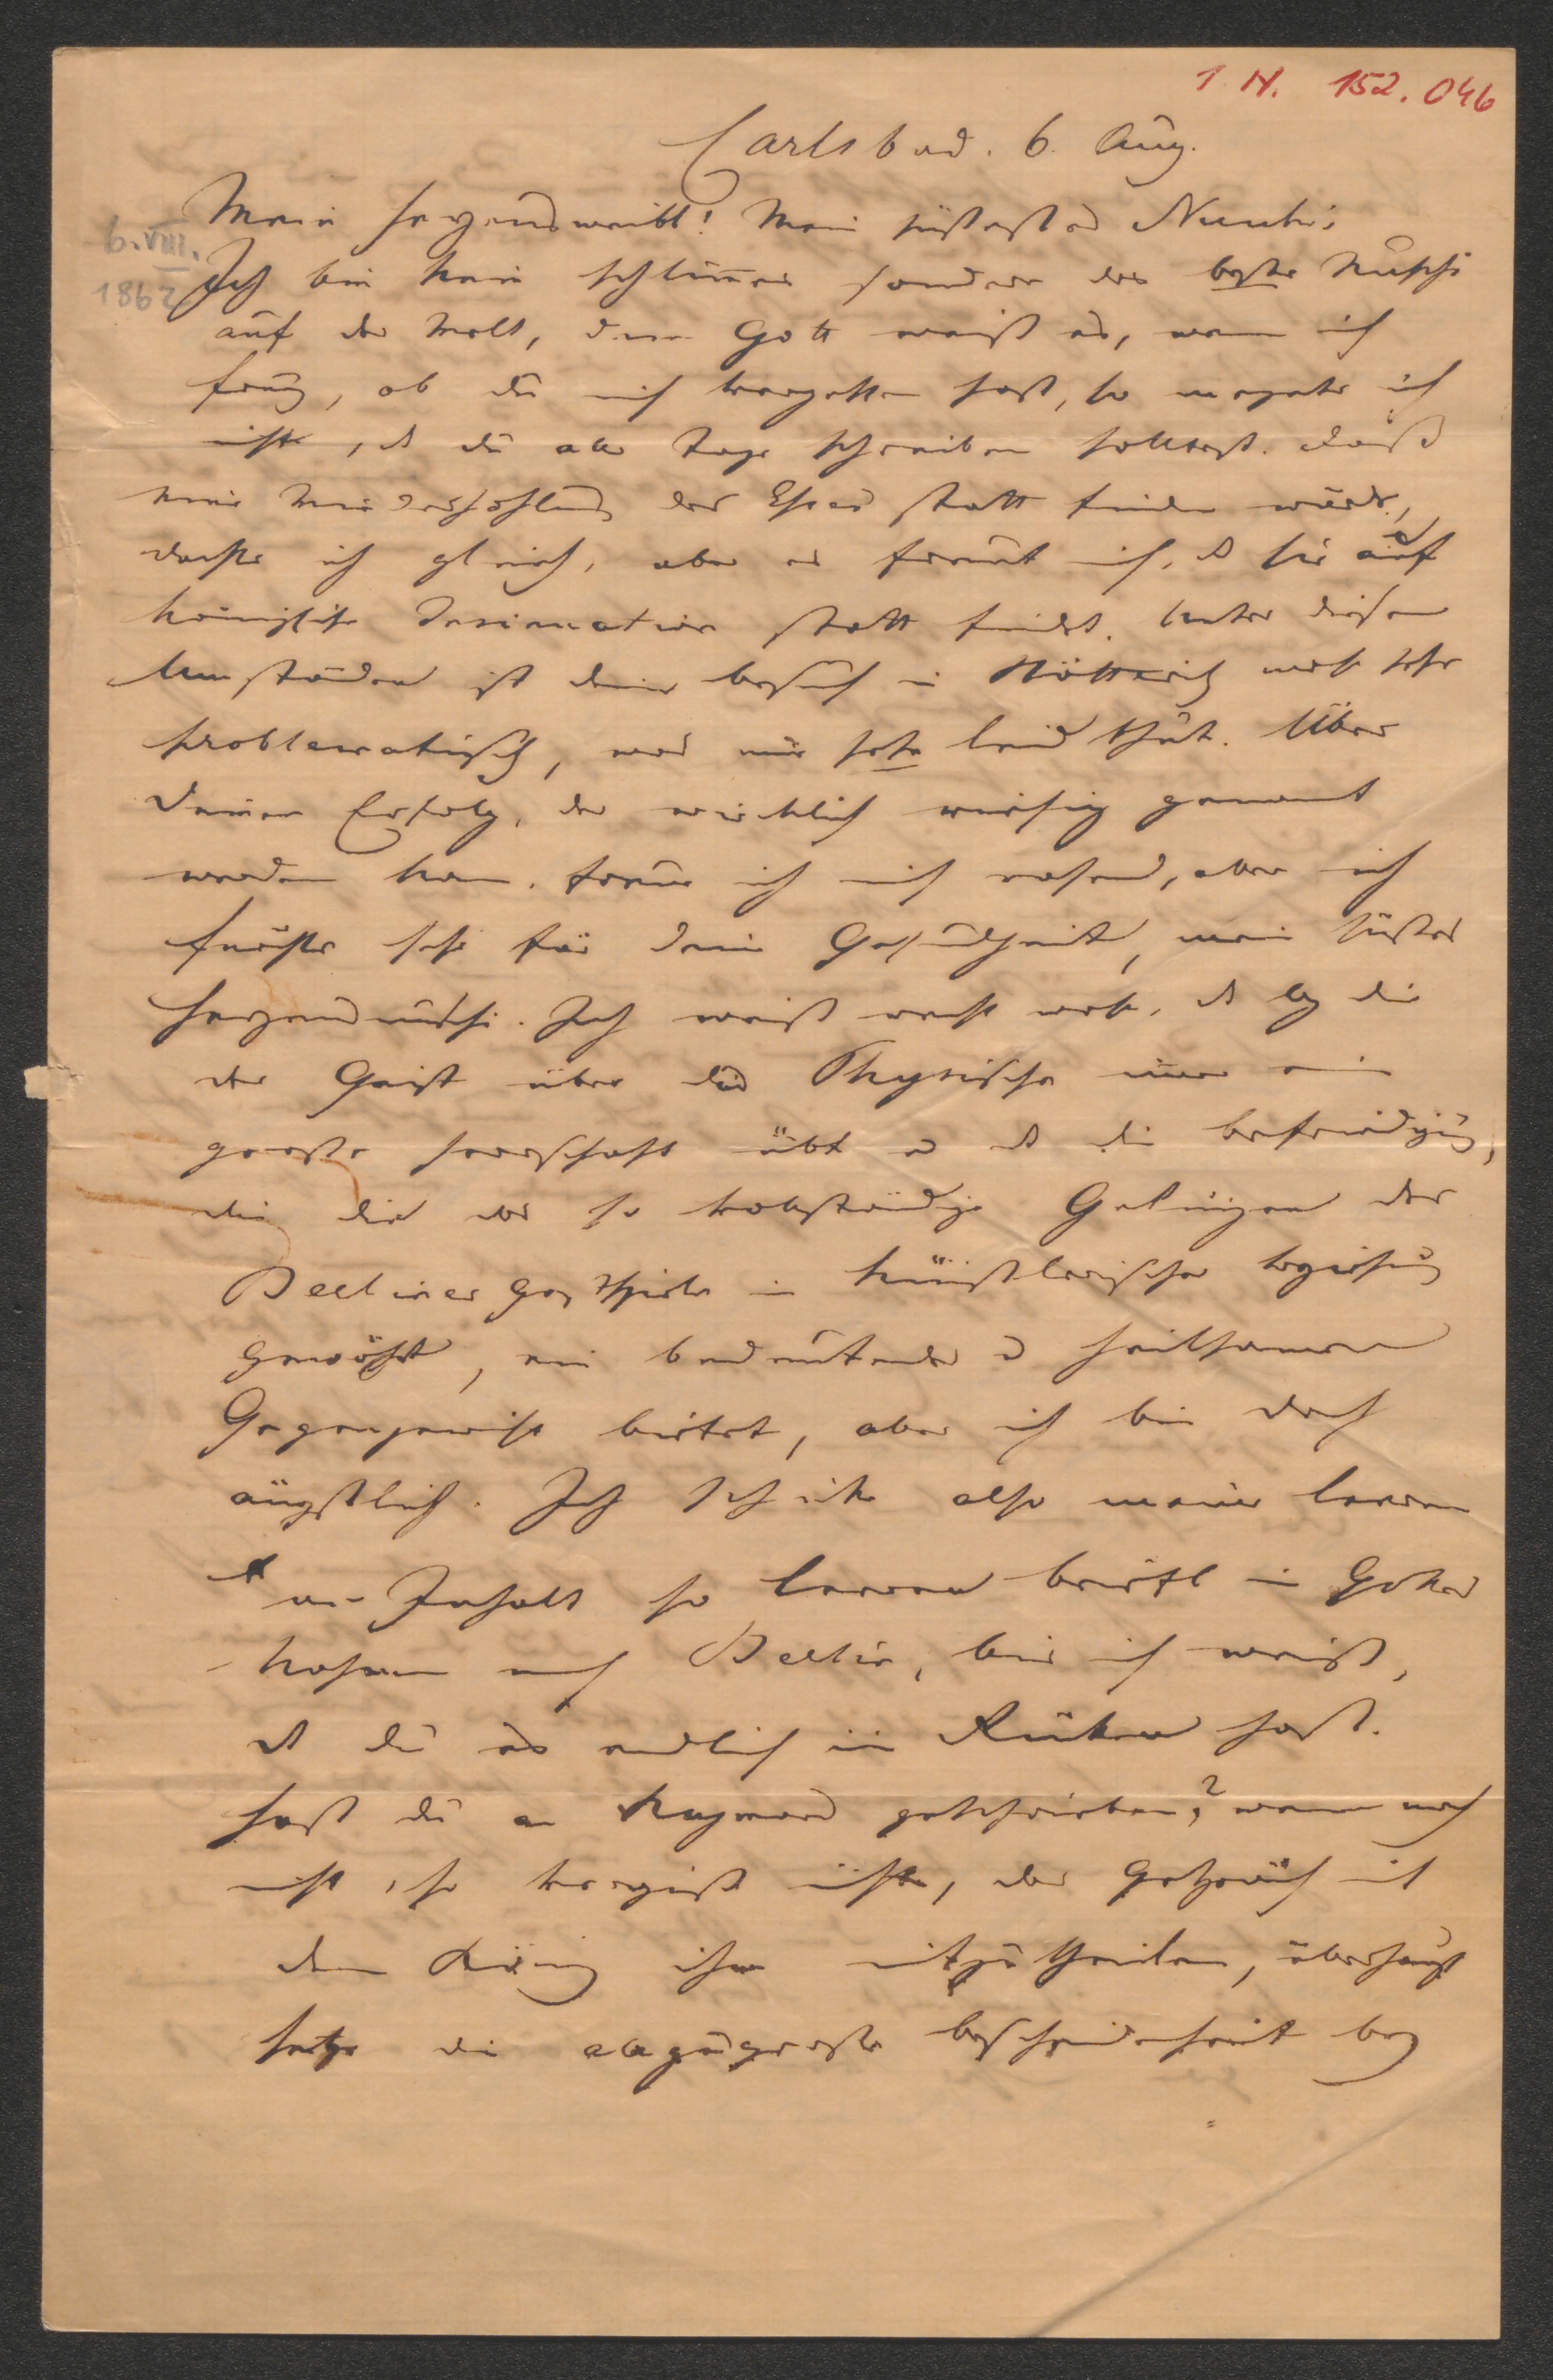 I. N. 152.046
Carlsbad. 6. Aug.
Mein Herzensweibl! Mein süßestes Nuschi!
6. VIII.
1862
Ich bin kein schlimmer sondern der beste Nuschi
auf der Welt, denn Gott weiß es, wenn ich
frug, ob du mich vergessen hast, so meynte ich
nicht, d du alle Tage schreiben solltest. Daß
keine Wiederhohlung der statt finden würde,
dachte ich gleich, aber es freut mich, d sie auf
königliche statt findet. Unter diesen
Umständen ist dein Besuch in wohl sehr
problematisch, was mir sehr leid thut. Über
deinen Erfolg, der wirklich genannt
werden kann, freue ich mich rasend, aber ich
fürchte sehr für deine Gesundheit, mein süßes
Herzensnuschi. Ich weiß recht wohl, d bey dir
der Geist über das Physische immer eine
große Herrschaft übt u d die Befriedigung,
die dir das so vollständige Gelingen der
Berliner Gastspiele in künstlerischer Beziehung
gewährt, ein bedeutendes u heilsames
Gegengewicht bietet, aber ich bin doch
ängstlich. Ich schicke also meine leeren
an Inhalt so leeren Briefl in Gottes
Nahmen nach Berlin, bis ich weiß,
d du es endlich im Rücken hast.
Hast du an geschrieben? wenn noch
nicht, so vergiß nicht, das Gespräch mit
dem König ihm mitzutheilen, überhaupt
setze die allzugroße Bescheidenheit bey